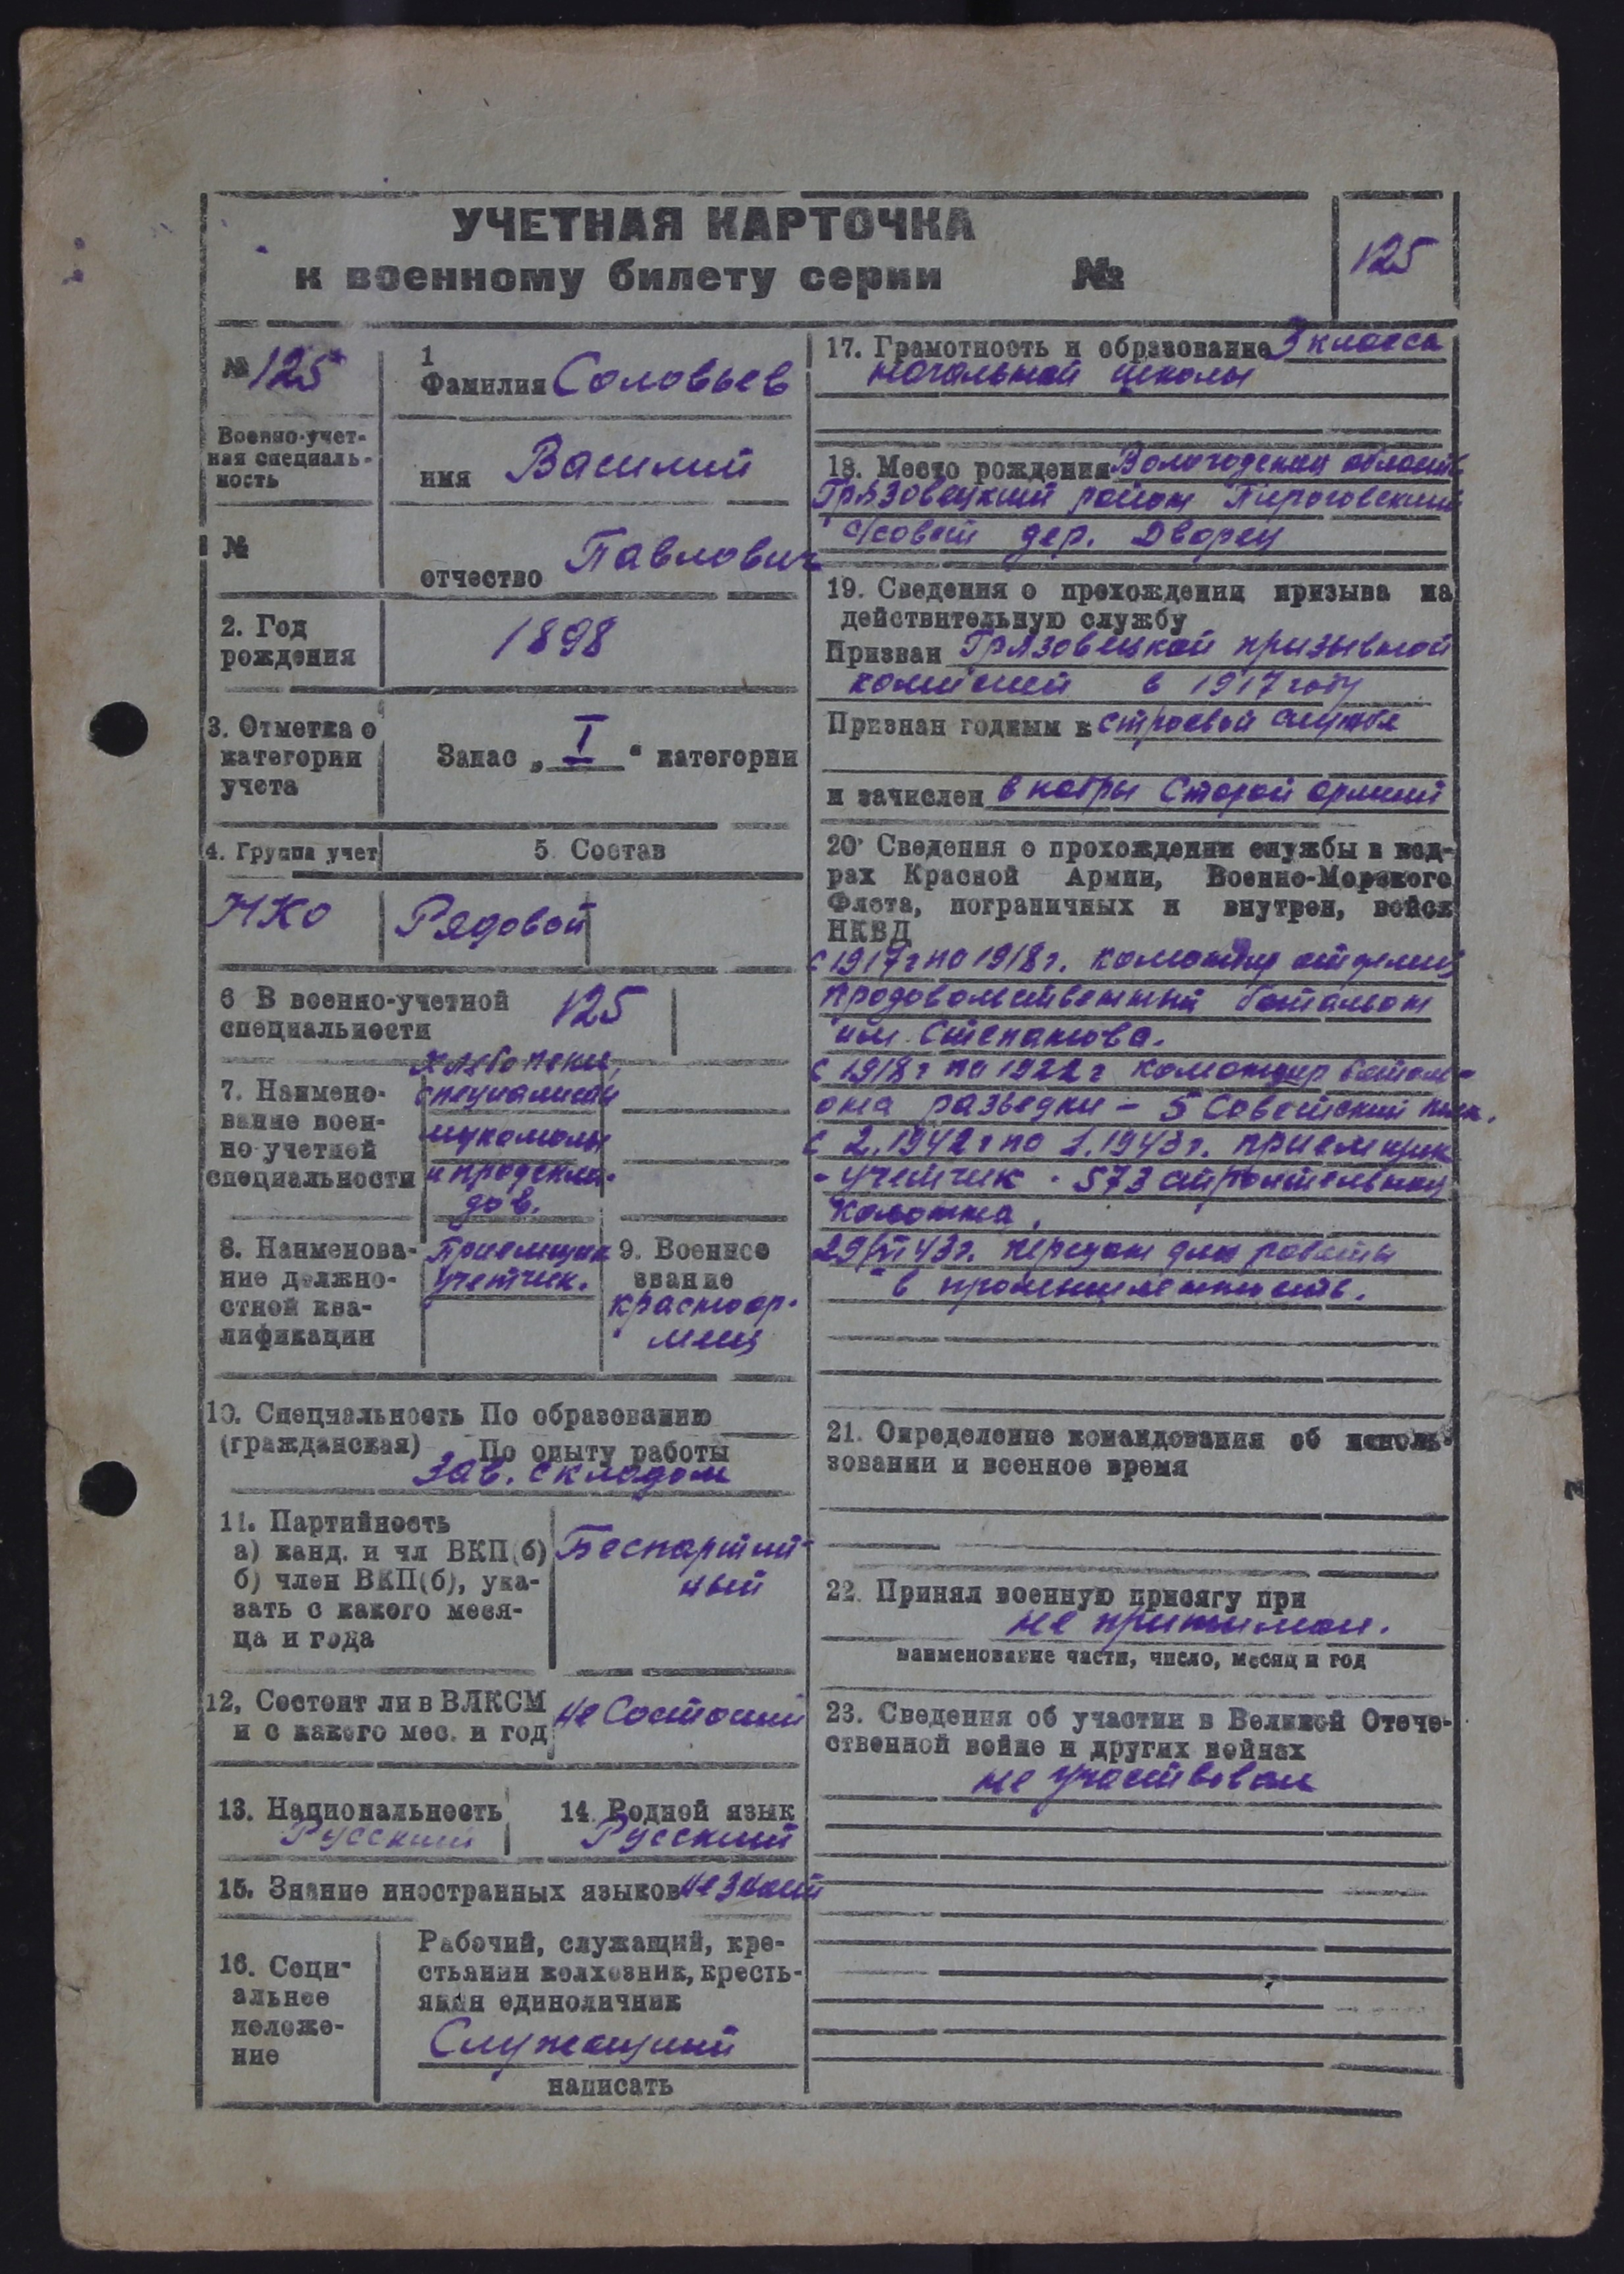 УЧЕТНАЯ КАРТОЧКА
к военному билету серии №
125
№ 125
Военно-учет-
ная специаль-
ность
№
1
Фамилия Соловьев
имя Василий
отчество Павлович
2. Год
рождения
1898
3. Отметка о
категории
учета
Запас „ I " категории
4. Группа учет
5. Состав
НКО
Рядовой
6 В военно-учетной
специальности
125
7. Наимено-
вание воен-
но-учетной
специальности
хлебопеки,
специалисты
мукомолы
и продскла-
дов.
8. Наименова-
ние должно-
стной ква-
лификации
Приемщик
учетчик.
9. Военное
звание
красноар-
меец
10. Специальность По образованию
(гражданская) По опыту работы
Зав. складом
11. Партийность
а) канд. и чл ВКП(б)
б) член ВКП(б), ука-
зать с какого меся-
ца и года
Беспартий-
ный
12, Состоит ли в ВЛКСМ
и с какого мес. и год
не Состоит
13. Национальность
Русский
14. Родной язык
Русский
15. Знание иностранных языков не знает
16. Соци-
альное
положе-
ние
Рабочий, служащий, кре-
стьянин колхозник, кресть-
янин единоличник
Служащий
написать
17. Грамотность и образование 3 класса
начальной школы
18. Место рождения Вологодская область
Грязовецкий район Пироговский
с/совет дер. Дворец
19. Сведения о прохождении призыва на
действительную службу
Призван Грязовецкой призывной
комисией в 1917 году
Признан годным к строевой службе
и зачислен в кадры Старой армии
20. Сведения о прохождении службы в кад-
рах Красной Армии, Военно-Морского
Флота, пограничных и внутрен, войск
НКВД
с 1917 г по 1918 г. командир отделен
продовольственный батальон
им. Степанова.
с 1918 г по 1922 г командир батал-
она разведки - 5 Советский полк.
с 2.1942 г по 1.1943 г. приемщик
- учетчик. 573 строительная
колонна,
29/VI 43 г. передан для работы
в промышленность.
21. Определение командования об исполь-
зовании и военное время
22. Принял военную присягу при
не принимал.
наименование части, число, месяц и год
23. Сведения об участии в Великой Отече-
ственной войне и других войнах
не участвовал